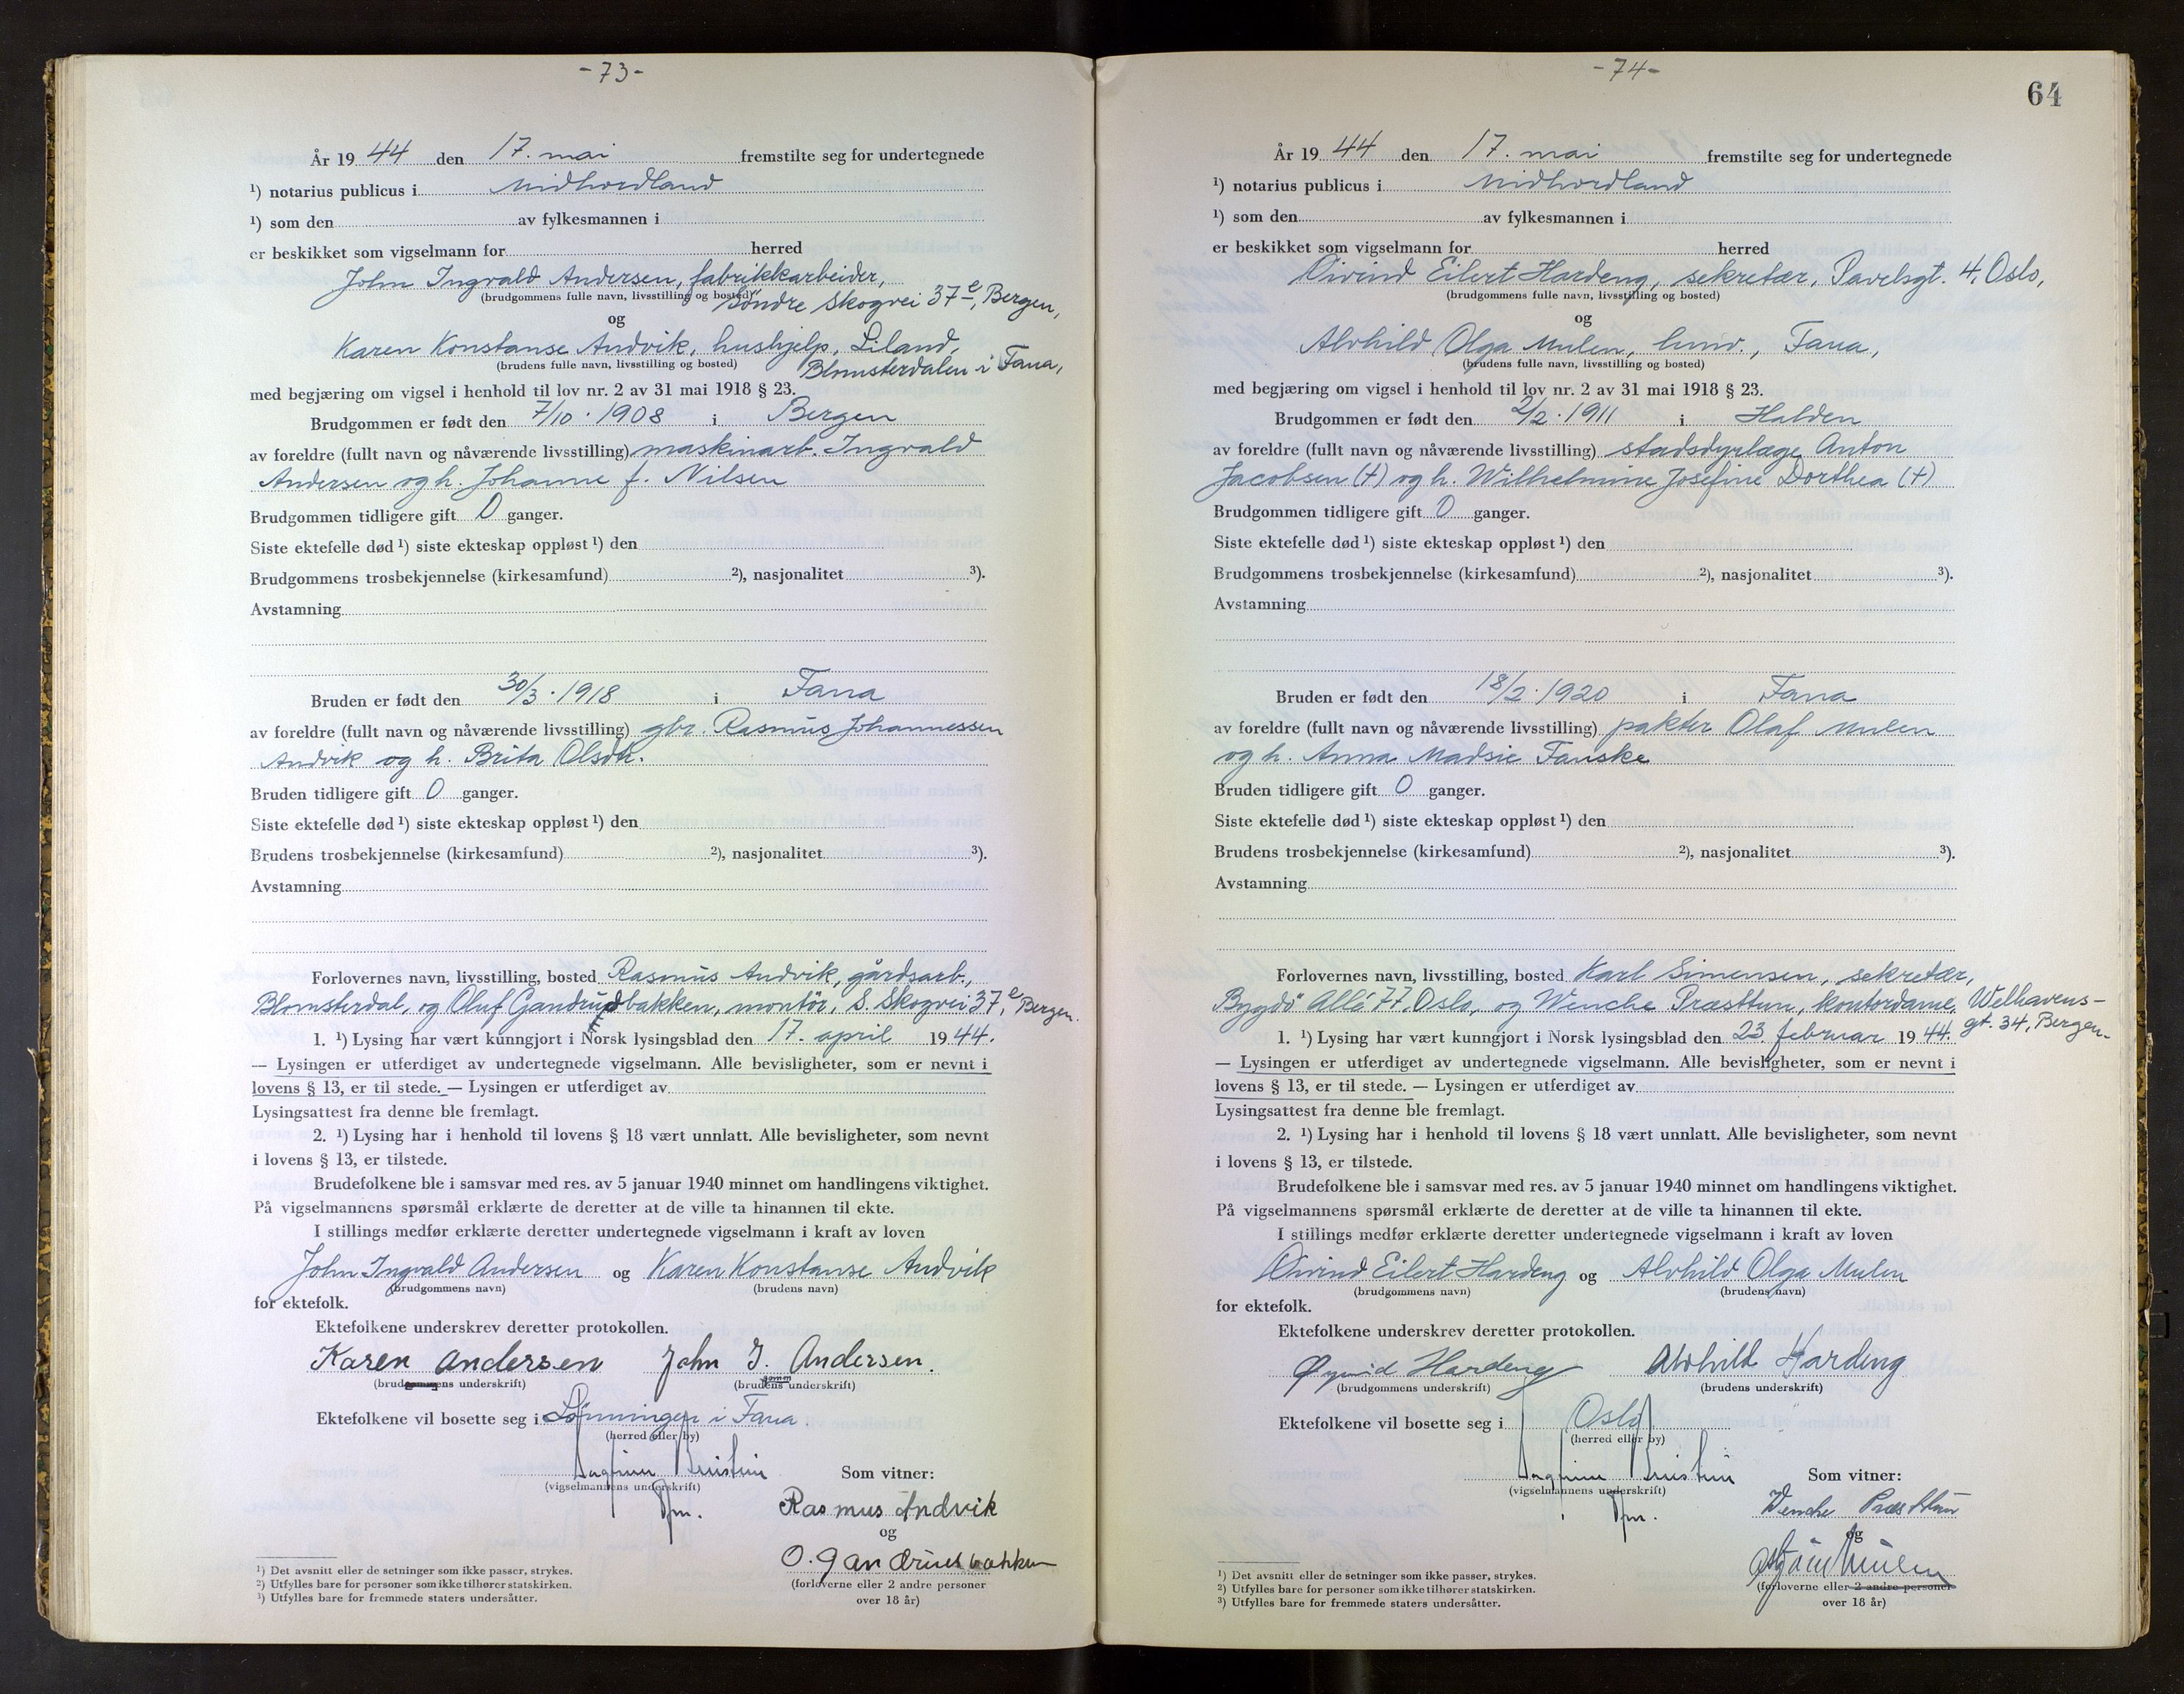 -73-
År 19 44 den 17. mai fremstilte seg for undertegnede
¹) notarius publicus i Midhordland
¹) som den av fylkesmannen i
er beskikket som vigselmann for herred
John Ingvald Andersen, fabrikkarbeider,
(brudgommens fulle navn, livsstilling og bosted) Söndre Skogvei 37 e, Bergen,
og
Karen Konstanse Andvik, hushjelp, Liland,
(brudens fulle navn, livsstilling og bosted) Blomsterdalen i Fana,
med begjæring om vigsel i henhold til lov nr. 2 av 31 mai 1918 § 23.
Brudgommen er født den 7/10 . 1908 i Bergen
av foreldre (fullt navn og nåværende livsstilling) maskinarb. Ingvald
Andersen og h. Johanne f. Nilsen
Brudgommen tidligere gift 0 ganger.
Siste ektefelle død ¹) siste ekteskap oppløst ¹) den
Brudgommens trosbekjennelse (kirkesamfund) ²), nasjonalitet ³).
Avstamning
Bruden er født den 30/3 . 1918 i Fana
av foreldre (fullt navn og nåværende livsstilling) gbr. Rasmus Johannessen
Andvik og h. Brita Olsdtr.
Bruden tidligere gift 0 ganger.
Siste ektefelle død ¹) siste ekteskap oppløst ¹) den
Brudens trosbekjennelse (kirkesamfund) ²), nasjonalitet ³).
Avstamning
Forlovernes navn, livsstilling, bosted Rasmus Andvik, gårdsarb.,
Blomsterdal, og Oluf Gandrudbakken, montör, S. Skogvei 37 e, Bergen.
1. ¹) Lysing har vært kunngjort i Norsk lysingsblad den 17. april 19 44.
— Lysingen er utferdiget av undertegnede vigselmann. Alle bevisligheter, som er nevnt i
lovens § 13, er til stede. — Lysingen er utferdiget av
Lysingsattest fra denne ble fremlagt.
2. ¹) Lysing har i henhold til lovens § 18 vært unnlatt. Alle bevisligheter, som nevnt
i lovens § 13, er tilstede.
Brudefolkene ble i samsvar med res. av 5 januar 1940 minnet om handlingens viktighet.
På vigselmannens spørsmål erklærte de deretter at de ville ta hinannen til ekte.
I stillings medfør erklærte deretter undertegnede vigselmann i kraft av loven
John Ingvald Andersen og Karen Konstanse Andvik
(brudgommens navn) (brudens navn)
for ektefolk.
Ektefolkene underskrev deretter protokollen.
Karen Andersen John I. Andersen.
(brudens underskrift) (brudens gomm underskrift)
Ektefolkene vil bosette seg i Lönningen i Fana.
(herred eller by)
(vigselmannens underskrift)
Som vitner:
Rasmus Andvik
og
O. Gandrudbakken
(forloverne eller 2 andre personer
over 18 år)
¹) Det avsnitt eller de setninger som ikke passer, strykes.
²) Utfylles bare for personer som ikke tilhører statskirken.
³) Utfylles bare for fremmede staters undersåtter.
-74-
64
År 19 44 den 17. mai fremstilte seg for undertegnede
¹) notarius publicus i Midhordland
¹) som den av fylkesmannen i
er beskikket som vigselmann for herred
Öivind Eilert Hardeng, sekretær, Pavelsgt. 4, Oslo,
(brudgommens fulle navn, livsstilling og bosted)
og
Alvhild Olga Mulen, husv., Fana,
(brudens fulle navn, livsstilling og bosted)
med begjæring om vigsel i henhold til lov nr. 2 av 31 mai 1918 § 23.
Brudgommen er født den 2/2 . 1911 i Halden
av foreldre (fullt navn og nåværende livsstilling) stadsdyrlæge Anton
Jacobsen (+) og h. Wilhelmine Josefine Dorthea (+)
Brudgommen tidligere gift 0 ganger.
Siste ektefelle død ¹) siste ekteskap oppløst ¹) den
Brudgommens trosbekjennelse (kirkesamfund) ²), nasjonalitet ³).
Avstamning
Bruden er født den 18/2 . 1920 i Fana
av foreldre (fullt navn og nåværende livsstilling) pakter Olaf Mulen
og h. Anna Madsie Fanske
Bruden tidligere gift 0 ganger.
Siste ektefelle død ¹) siste ekteskap oppløst ¹) den
Brudens trosbekjennelse (kirkesamfund) ²), nasjonalitet ³).
Avstamning
Forlovernes navn, livsstilling, bosted Karl Simensen, sekretær,
Bygdö Allé 77, Oslo, og Wenche Præsttun, kontordame, Welhavens-
gt. 34, Bergen.
1. ¹) Lysing har vært kunngjort i Norsk lysingsblad den 23. februar 19 44.
— Lysingen er utferdiget av undertegnede vigselmann. Alle bevisligheter, som er nevnt i
lovens § 13, er til stede. — Lysingen er utferdiget av
Lysingsattest fra denne ble fremlagt.
2. ¹) Lysing har i henhold til lovens § 18 vært unnlatt. Alle bevisligheter, som nevnt
i lovens § 13, er tilstede.
Brudefolkene ble i samsvar med res. av 5 januar 1940 minnet om handlingens viktighet.
På vigselmannens spørsmål erklærte de deretter at de ville ta hinannen til ekte.
I stillings medfør erklærte deretter undertegnede vigselmann i kraft av loven
Öivind Eilert Hardeng og Alvhild Olga Mulen
(brudgommens navn) (brudens navn)
for ektefolk.
Ektefolkene underskrev deretter protokollen.
Øyvind Hardeng Alvhild Hardeng
(brudgommens underskrift) (brudens underskrift)
Ektefolkene vil bosette seg i Oslo
(herred eller by)
(vigselmannens underskrift)
Som vitner:
Wenche Præsttun
og
Mulen
(forloverne eller 2 andre personer
over 18 år)
¹) Det avsnitt eller de setninger som ikke passer, strykes.
²) Utfylles bare for personer som ikke tilhører statskirken.
³) Utfylles bare for fremmede staters undersåtter.